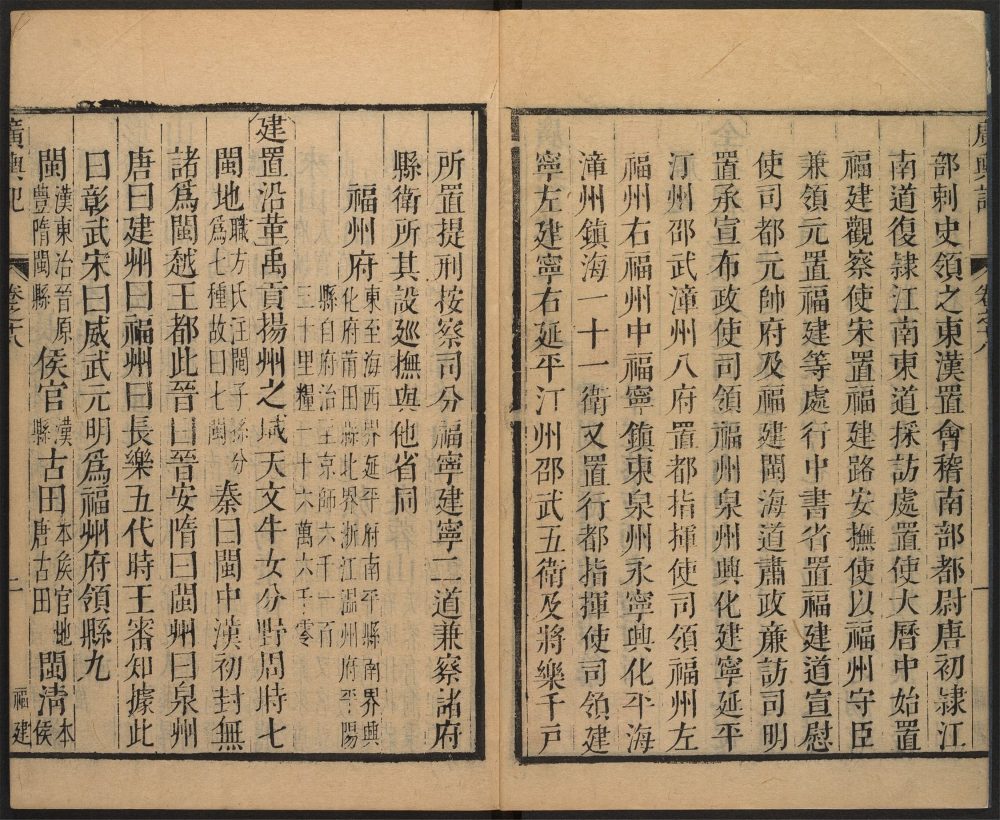 廣輿記
卷之十八
部刺史領之東漢置會稽南部都尉唐初隸江
南道復隸江南東道採訪處置使大曆中始置
福建觀察使宋置福建路安撫使以福州守臣
兼領元置福建等處行中書省置福建道宣慰
使司都元帥府及福建閩海道肅政亷訪司明
置承宣布政使司領福州泉州興化建寧延平
汀州邵武漳州八府置都指揮使司領福州左
福州右福州中福寧鎮東泉州永寧興化平海
漳州鎮海一十一衛又置行都指揮使司領建
寧左建寧右延平汀州邵武五衛及將樂千戸
所置提刑按察司分福寧建寧二道兼察諸府
縣衛所其設廵撫與他省同
福州府
東至海西界延平府南平縣南界興
化府莆田縣北界浙江溫州府平陽
縣自府治至京師六千一百
三十里糧一十六萬六千零
建置沿革禹貢揚州之域天文牛女分野周時七
閩地
職方氏汪閩子孫分
爲七種故曰七閩
秦曰閩中漢初封無
諸爲閩越王都此晉曰晉安隋曰閩州曰泉州
唐曰建州曰福州曰長樂五代時王審知據此
曰彰武宋曰威武元明爲福州府領縣九
閩
漢東冶晉原
豐隋閩縣
侯官
漢
縣
古田
本侯官地
唐古田
閩清
本
侯
廣輿記
卷之十八
一
福建